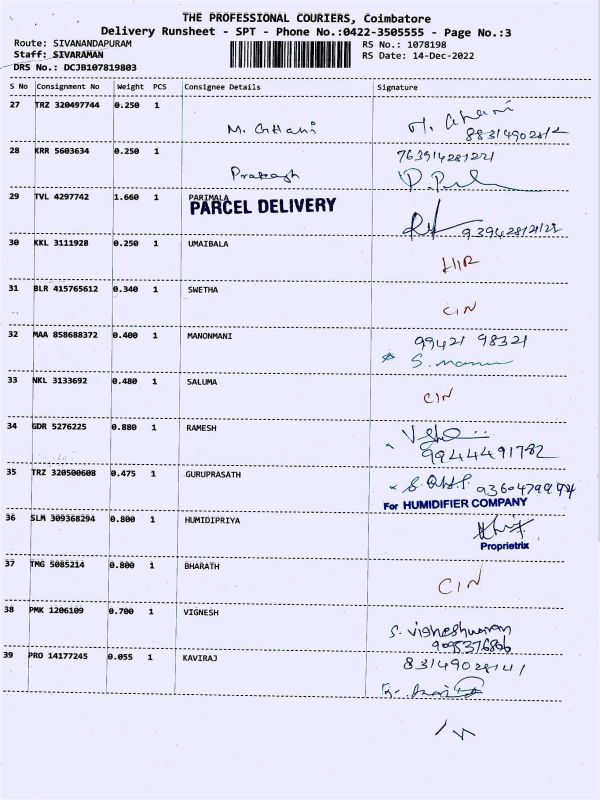 THE PROFESSIONAL COURIERS, Coimbatore
Delivery Runsheet - SPT - Phone No.:0422-3505555 - Page No.:3
Route: SIVANANDAPURAM RS No.: 1078198
Staff: SIVARAMAN RS Date: 14-Dec-2022
DRS No.: DCJB107819803
S No Consignment No Weight PCS Consignee Details Signature
27 TRZ 320497744 0.250 1
28 KRR 5603634 0.250 1 Prakash
29 TVL 4297742 1.660 1 PARIMALA
PARCEL DELIVERY
30 KKL 3111928 0.250 1 UMAIBALA
31 BLR 415765612 0.340 1 SWETHA CIN
32 MAA 858688372 0.400 1 MANONMANI 99421 98321
33 NKL 3133692 0.480 1 SALUMA CIN
34 GDR 5276225 0.880 1 RAMESH
9944491782
35 TRZ 320500608 0.475 1 GURUPRASATH
For HUMIDIFIER COMPANY
36 SLM 309368294 0.800 1 HUMIDIPRIYA
Proprietrix
37 TMG 5085214 0.800 1 BHARATH CIN
38 PMK 1206109 0.700 1 VIGNESH
S. Vigneshwaran
39 PRO 14177245 0.055 1 KAVIRAJ